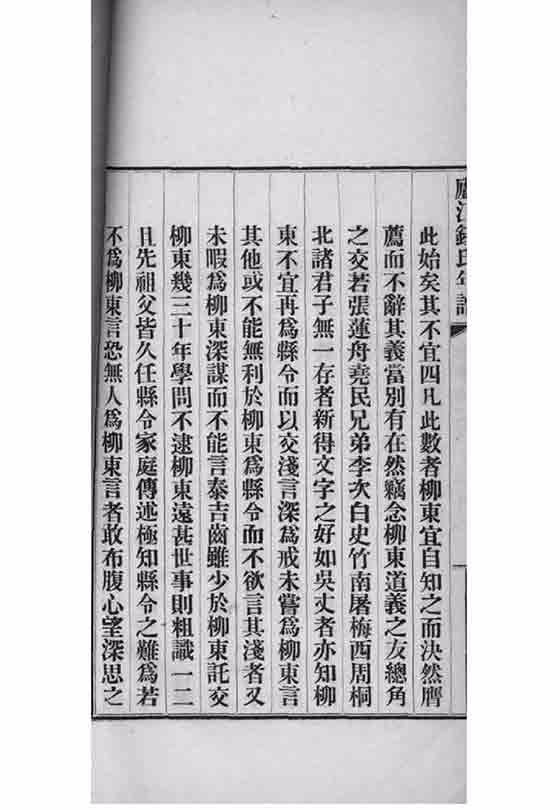 廬江錢氏年譜
此始矣其不宜四凡此數者柳東宜自知之而決然膺
薦而不辭其義當別有在然竊念柳東道義之友總角
之交若張蓮舟堯民兄弟李次白史竹南屠梅西周桐
北諸君子無一存者新得文字之好如吳丈者亦知柳
東不宜再爲縣令而以交淺言深爲戒未嘗爲柳東言
其他或不能無利於柳東爲縣令而不欲言其淺者又
未暇爲柳東深謀而不能言泰吉齒雖少於柳東託交
柳東幾三十年學問不逮柳東遠甚世事則粗識一二
且先祖父皆久任縣令家庭傳述極知縣令之難爲若
不爲柳東言恐無人爲柳東言者敢布腹心望深思之